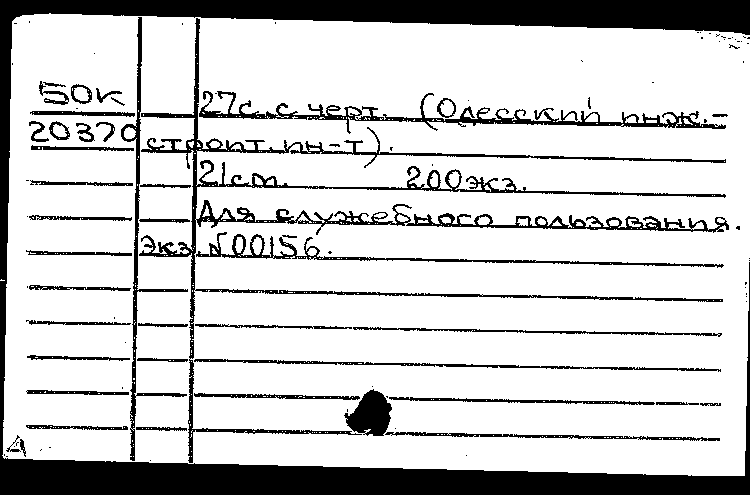 50К 27с. с черт. (Одесский инж.-
20370 строит. ин-т).
21см. 200экз.
Для служебного пользования.
Экз. №00156.